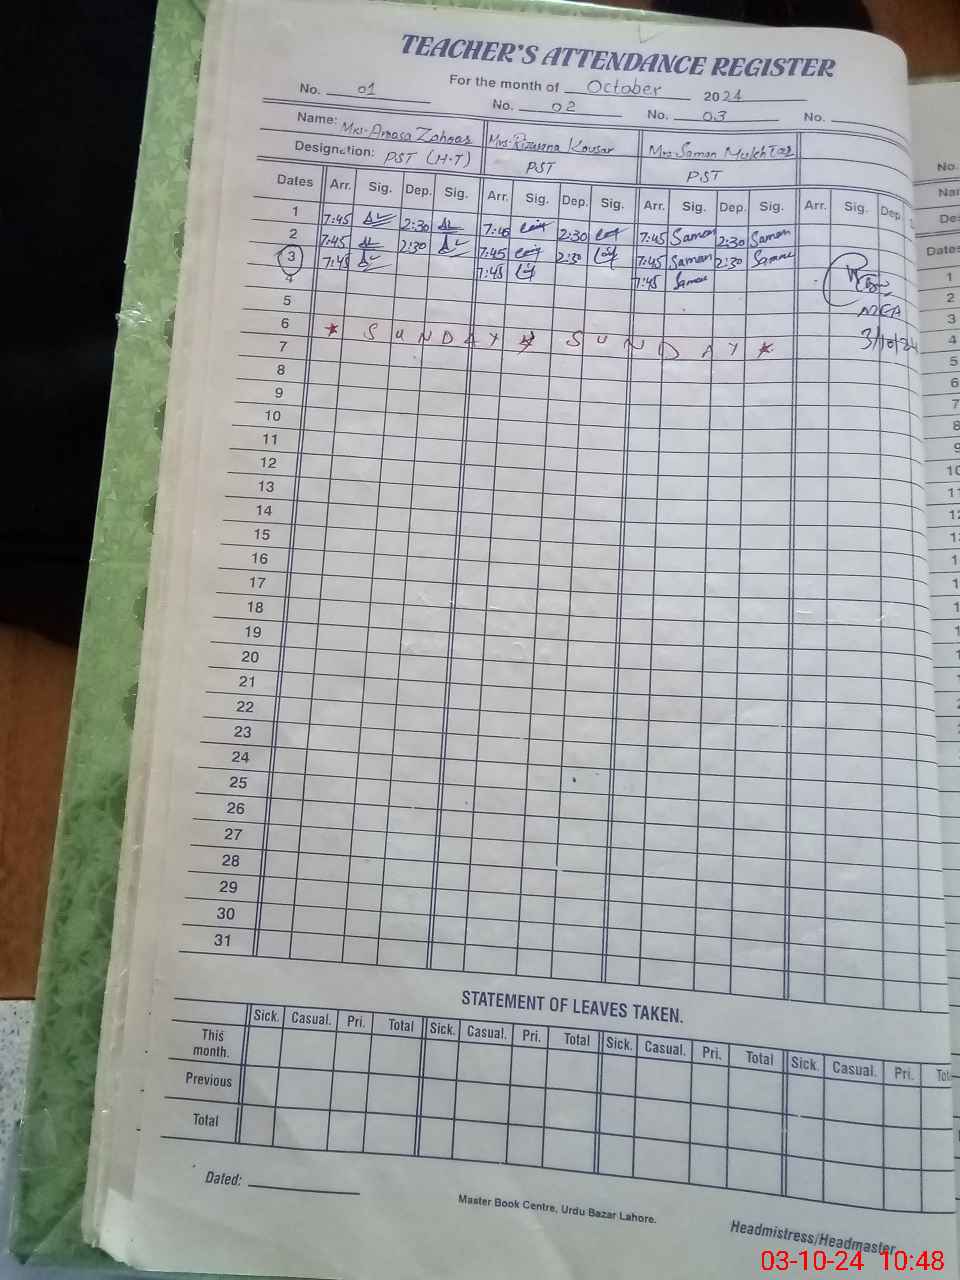 TEACHER'S ATTENDANCE REGISTER
For the month of October 2024
No. 01 No. 02 No. 03 No.
Name: Mrs. Zahoor Mrs. Kousar Mrs. Saman
Designation: PST (H.T) PST PST
Dates Arr. Sig. Dep. Sig. Arr. Sig. Dep. Sig. Arr. Sig. Dep. Sig. Arr. Sig. Dep.
1 7:45 2:30 7:45 2:30 7:45 Saman 2:30 Saman
2 7:45 2:30 7:45 2:30 7:45 Saman 2:30 Saman
3 7:45 7:45 7:45 Saman
4
5
6 * SUNDAY * SUNDAY *
7
8
9
10
11
12
13
14
15
16
17
18
19
20
21
22
23
24
25
26
27
28
29
30
31
3/10/24
STATEMENT OF LEAVES TAKEN.
Sick. Casual. Pri. Total Sick. Casual. Pri. Total Sick. Casual. Pri. Total Sick. Casual. Pri.
This
month.
Previous
Total
Dated:
Master Book Centre, Urdu Bazar Lahore.
Headmistress/Headmaster
No.
Dates
1
2
3
4
5
6
7
8
9
10
03-10-24 10:48